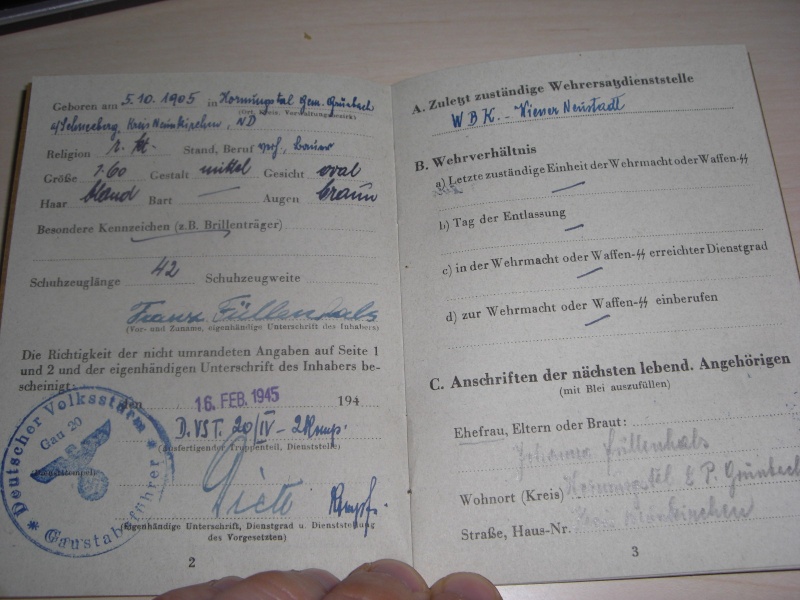 Geboren am 5.10.1905 in Hornungstal Gem. Grünbach
(Ort, Kreis, Verwaltungsbezirk)
a/Schneeberg, Kreis Neunkirchen, ND
Religion r. kt. Stand, Beruf verh., Bauer
Größe 1.60 Gestalt mittel Gesicht oval
Haar blond Bart — Augen braun
Besondere Kennzeichen (z.B. Brillenträger)
Schuhzeuglänge 42 Schuhzeugweite
Franz Füllenhals
(Vor- und Zuname, eigenhändige Unterschrift des Inhabers)
Die Richtigkeit der nicht umrandeten Angaben auf Seite 1
und 2 und der eigenhändigen Unterschrift des Inhabers be-
scheinigt:
den 16. FEB. 1945 194
D.VST. 20/IV – 2 Komp.
(Ausfertigender Truppenteil, Dienststelle)
(Dienststempel)
Deutscher Volkssturm
Gau 20
Gaustabsführer
Kompf.
(Eigenhändige Unterschrift, Dienstgrad u. Dienststellung
des Vorgesetzten)
2
A. Zuletzt zuständige Wehrersatzdienststelle
WBK. - Wiener Neustadt
B. Wehrverhältnis
a) Letzte zuständige Einheit der Wehrmacht oder Waffen-SS
b) Tag der Entlassung
c) in der Wehrmacht oder Waffen-SS erreichter Dienstgrad
d) zur Wehrmacht oder Waffen-SS einberufen
C. Anschriften der nächsten lebend. Angehörigen
(mit Blei auszufüllen)
Ehefrau, Eltern oder Braut:
Johanna Füllenhals
Wohnort (Kreis) Hornungstal P. Grünbach
Straße, Haus-Nr. Neunkirchen
3